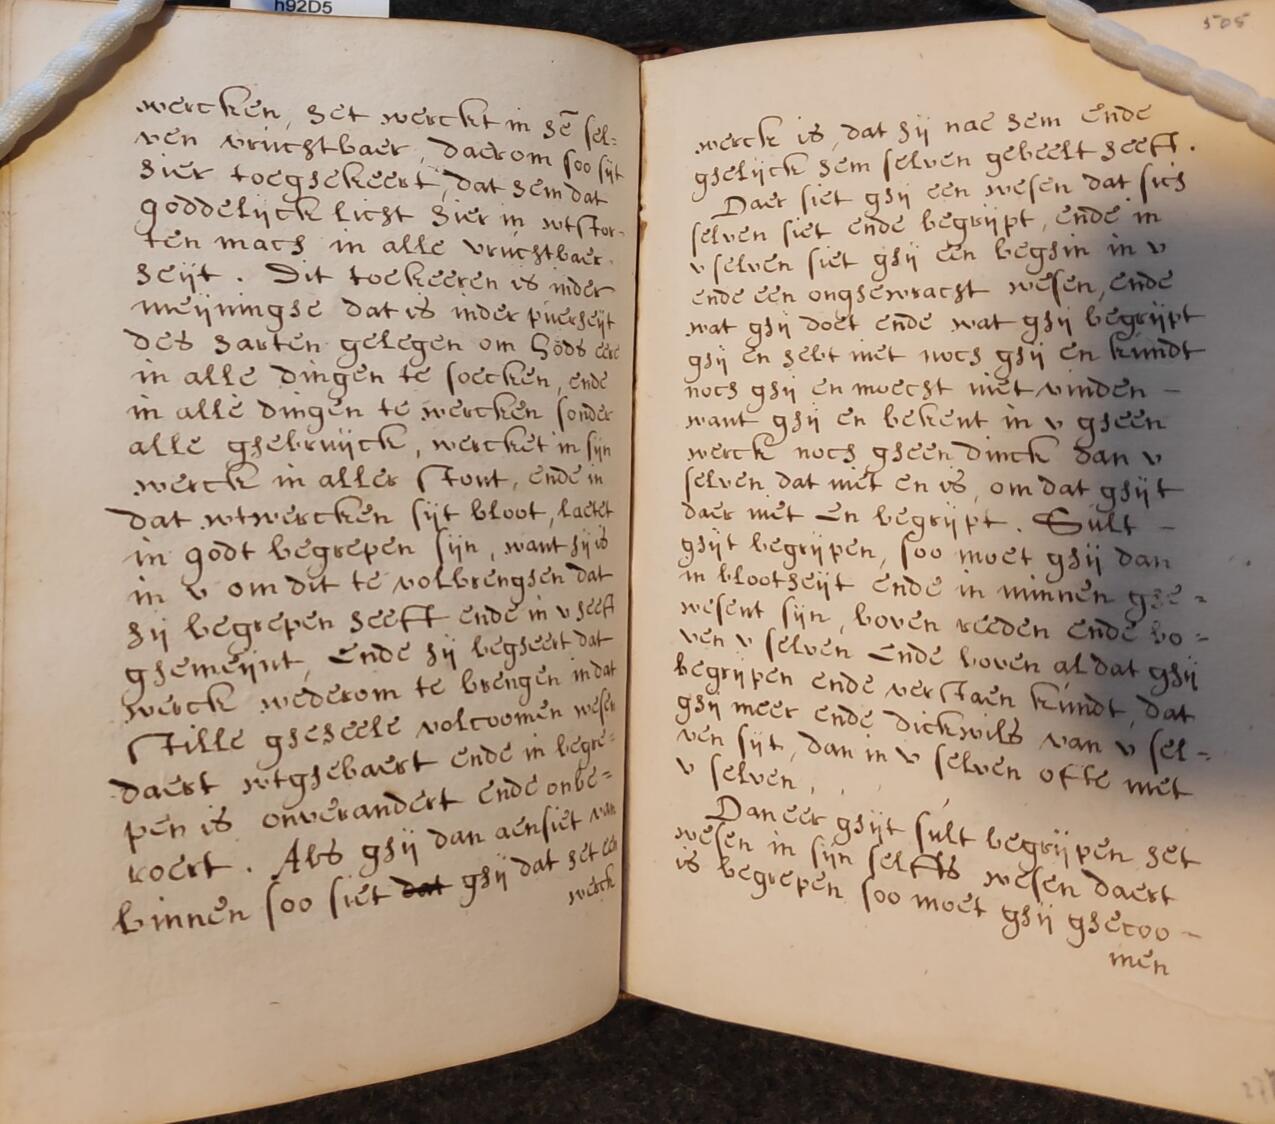 h92D5
wercken, het werckt in hē sel=
ven vruchtbaer, daerom soo sijt
hier toeghekeert, dat hem dat
goddelijck licht hier in wtstor-
ten mach in alle vruchtbaer-
heijt. Dit toekeeren is inder
meijninghe dat is inder puerheijt
des harten gelegen om Gods eere
in alle dingen te soecken, ende
in alle dingen te wercken sonder
alle ghebruijck, wercket in sijn
werck in aller stont, ende in
dat wtwercken sijt bloot, laetet
in godt begrepen sijn, want hij is
in v om dit te volbrenghen dat
hij begrepen heeft ende in v heeft
ghemeijnt, Ende hij begheert dat
werck wederom te brengen in dat
stille gheheele volcoomen wesen
daert wtghebaert ende in begre=
pen is onverandert ende onbe=
roert. Als ghij dan aensiet van
binnen soo siet dat ghij dat het een
werck
505
werck is, dat hij nae hem ende
ghelijck hem selven gebeelt heeft.
Daer siet ghij een wesen dat sich
selven siet ende begrijpt, ende in
v selven siet ghij een beghin in v
ende een onghewracht wesen, ende
wat ghij doet ende wat ghij begrijpt
ghij en hebt niet noch ghij en kundt
noch ghij en moecht niet vinden -
want ghij en bekent in v gheen
werck noch gheen dinck dan v
selven dat niet en is, om dat ghijt
daer niet en begrijpt. Sult -
ghijt begrijpen, soo moet ghij dan
in blootheijt ende in minnen ghe=
wesent sijn, boven reeden ende bo=
ven v selven Ende boven al dat ghij
begrijpen ende verstaen kundt, dat
ghij meer ende dickwils van v sel-
ven sijt, dan in v selven ofte met
v selven,
Daneer ghijt sult begrijpen het
wesen in sijn selfs wesen daert
is begrepen soo moet ghij ghecoo-
men